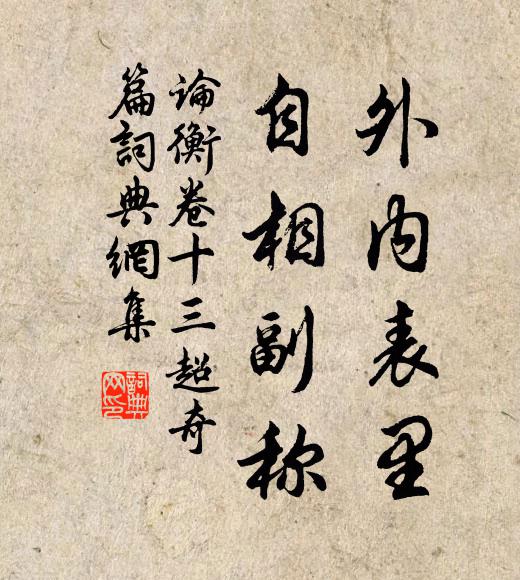 外内表里
自相副称
論衡卷十三超奇
篇詞典網集
詞典
网印